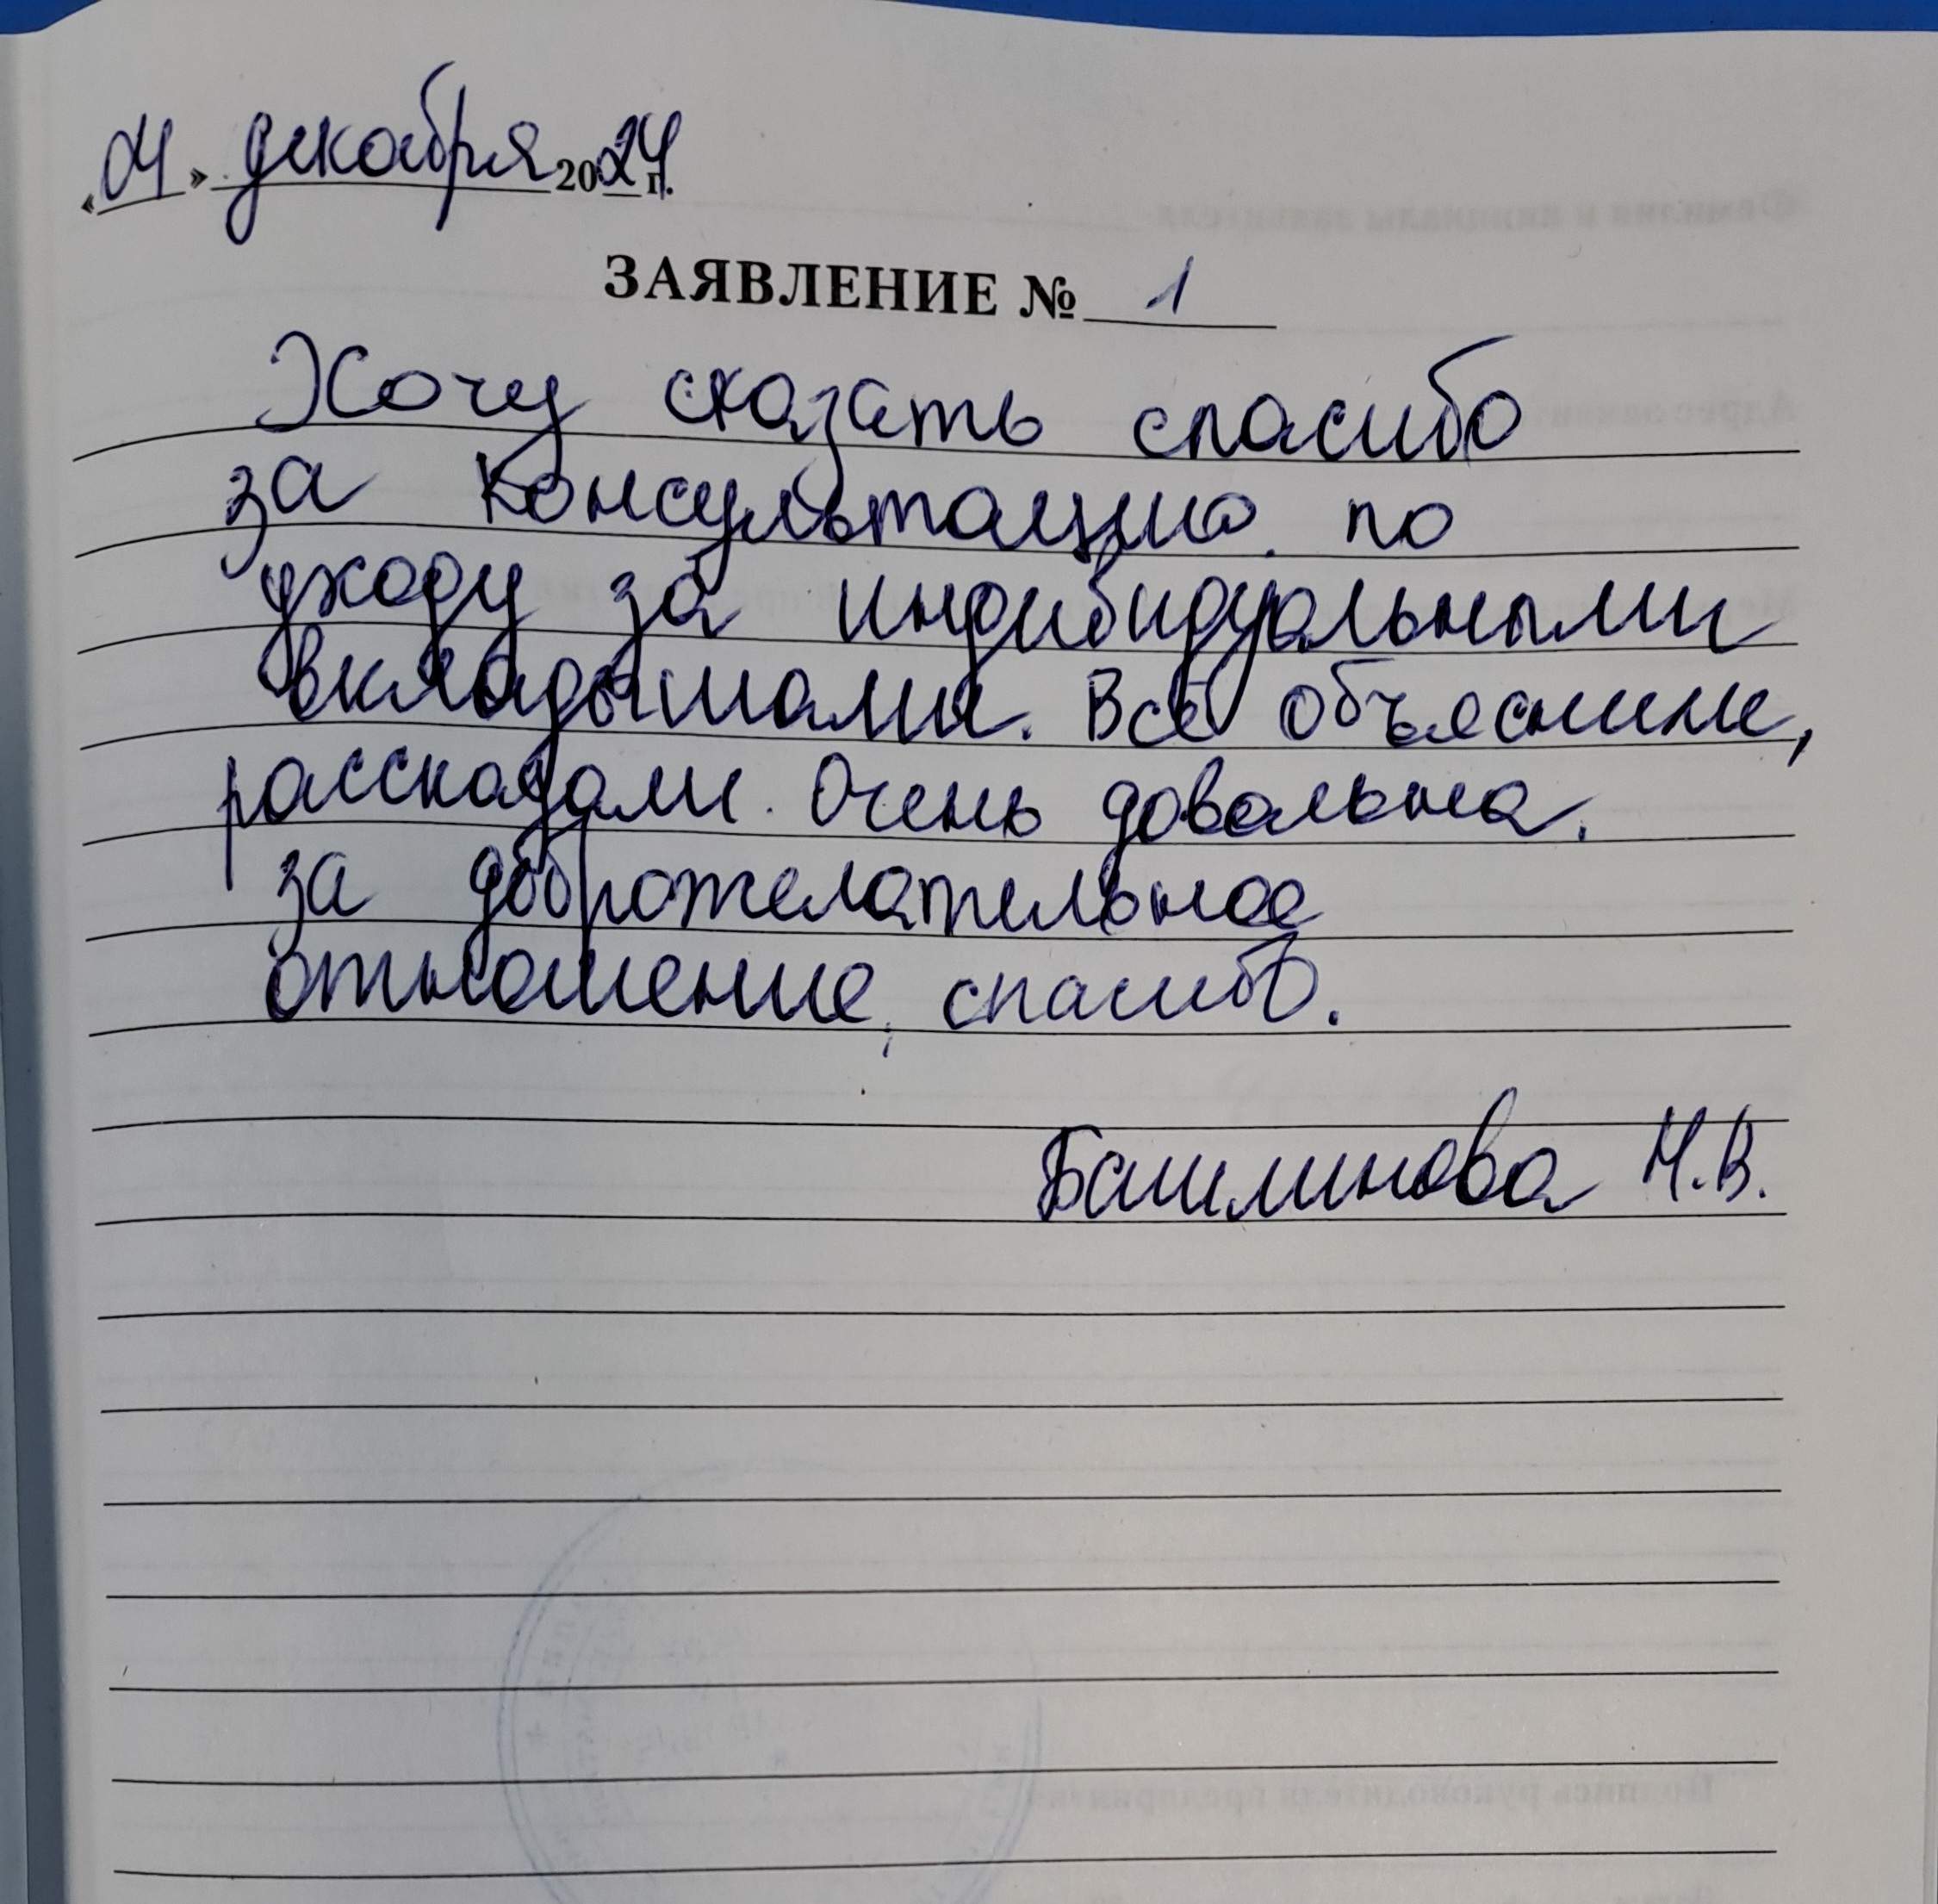 «04» декабря 2024 г.
ЗАЯВЛЕНИЕ № 1
Хочу сказать спасибо
за консультацию по
уходу за индивидуальными
вкладышами. Всё объяснили,
рассказали. Очень довольна.
за доброжелательное
отношение, спасибо.
Башминова Н.В.